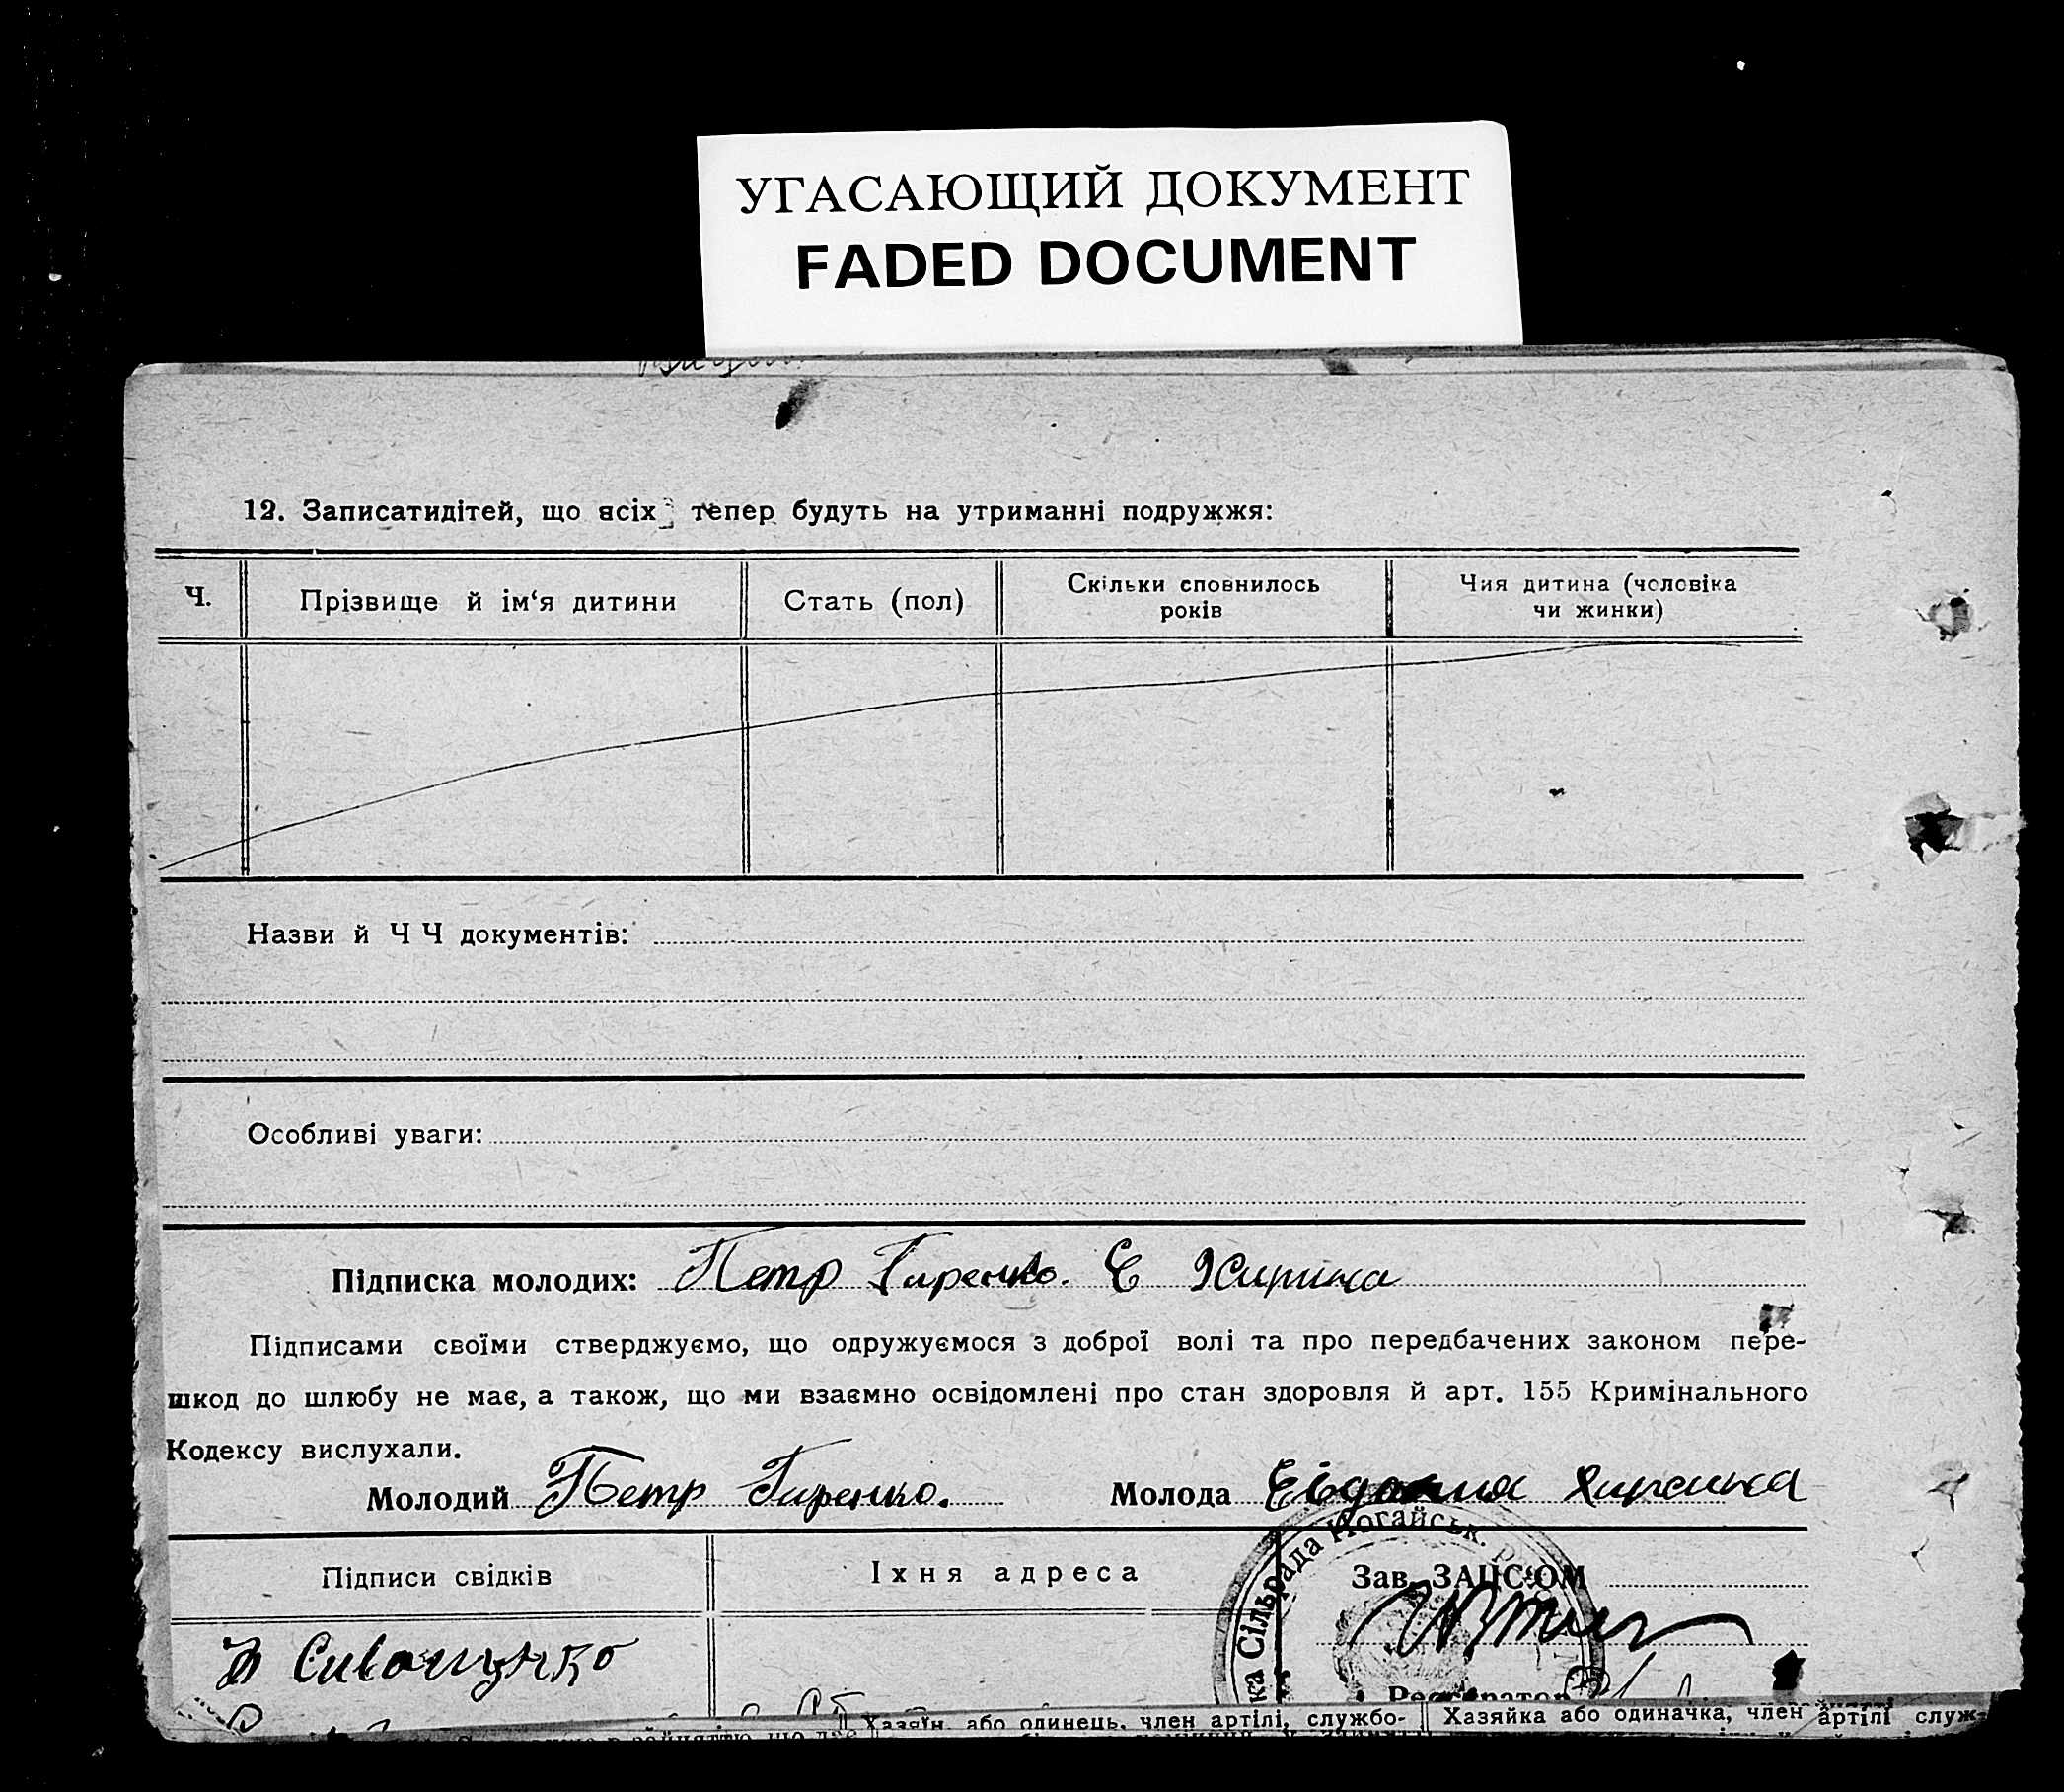 УГАСАЮЩИЙ ДОКУМЕНТ
FADED DOCUMENT
12. Записатидітей, що всіх тепер будуть на утриманні подружжя:
Ч.
Прізвище й ім‘я дитини
Стать (пол)
Скільки сповнилось
років
Чия дитина (чоловіка
чи жинки)
Назви й Ч Ч документів:
Особливі уваги:
Підписка молодих: Петр Гиренко. Є
Підписами своїми стверджуємо, що одружуємося з доброї волі та про передбачених законом пере-
шкод до шлюбу не має, а також, що ми взаємно освідомлені про стан здоровля й арт. 155 Кримінального
Кодексу вислухали.
Молодий Петр Гиренко.
Молода
Підписи свідків
Іхня адреса
Зав. ЗАЦС‘ОМ
ка Сільрада Ногайськ.
Реєстратор
Хазяїн, або одинець, член артілі, службо-
Хазяйка або одиначка, член артілі служ-